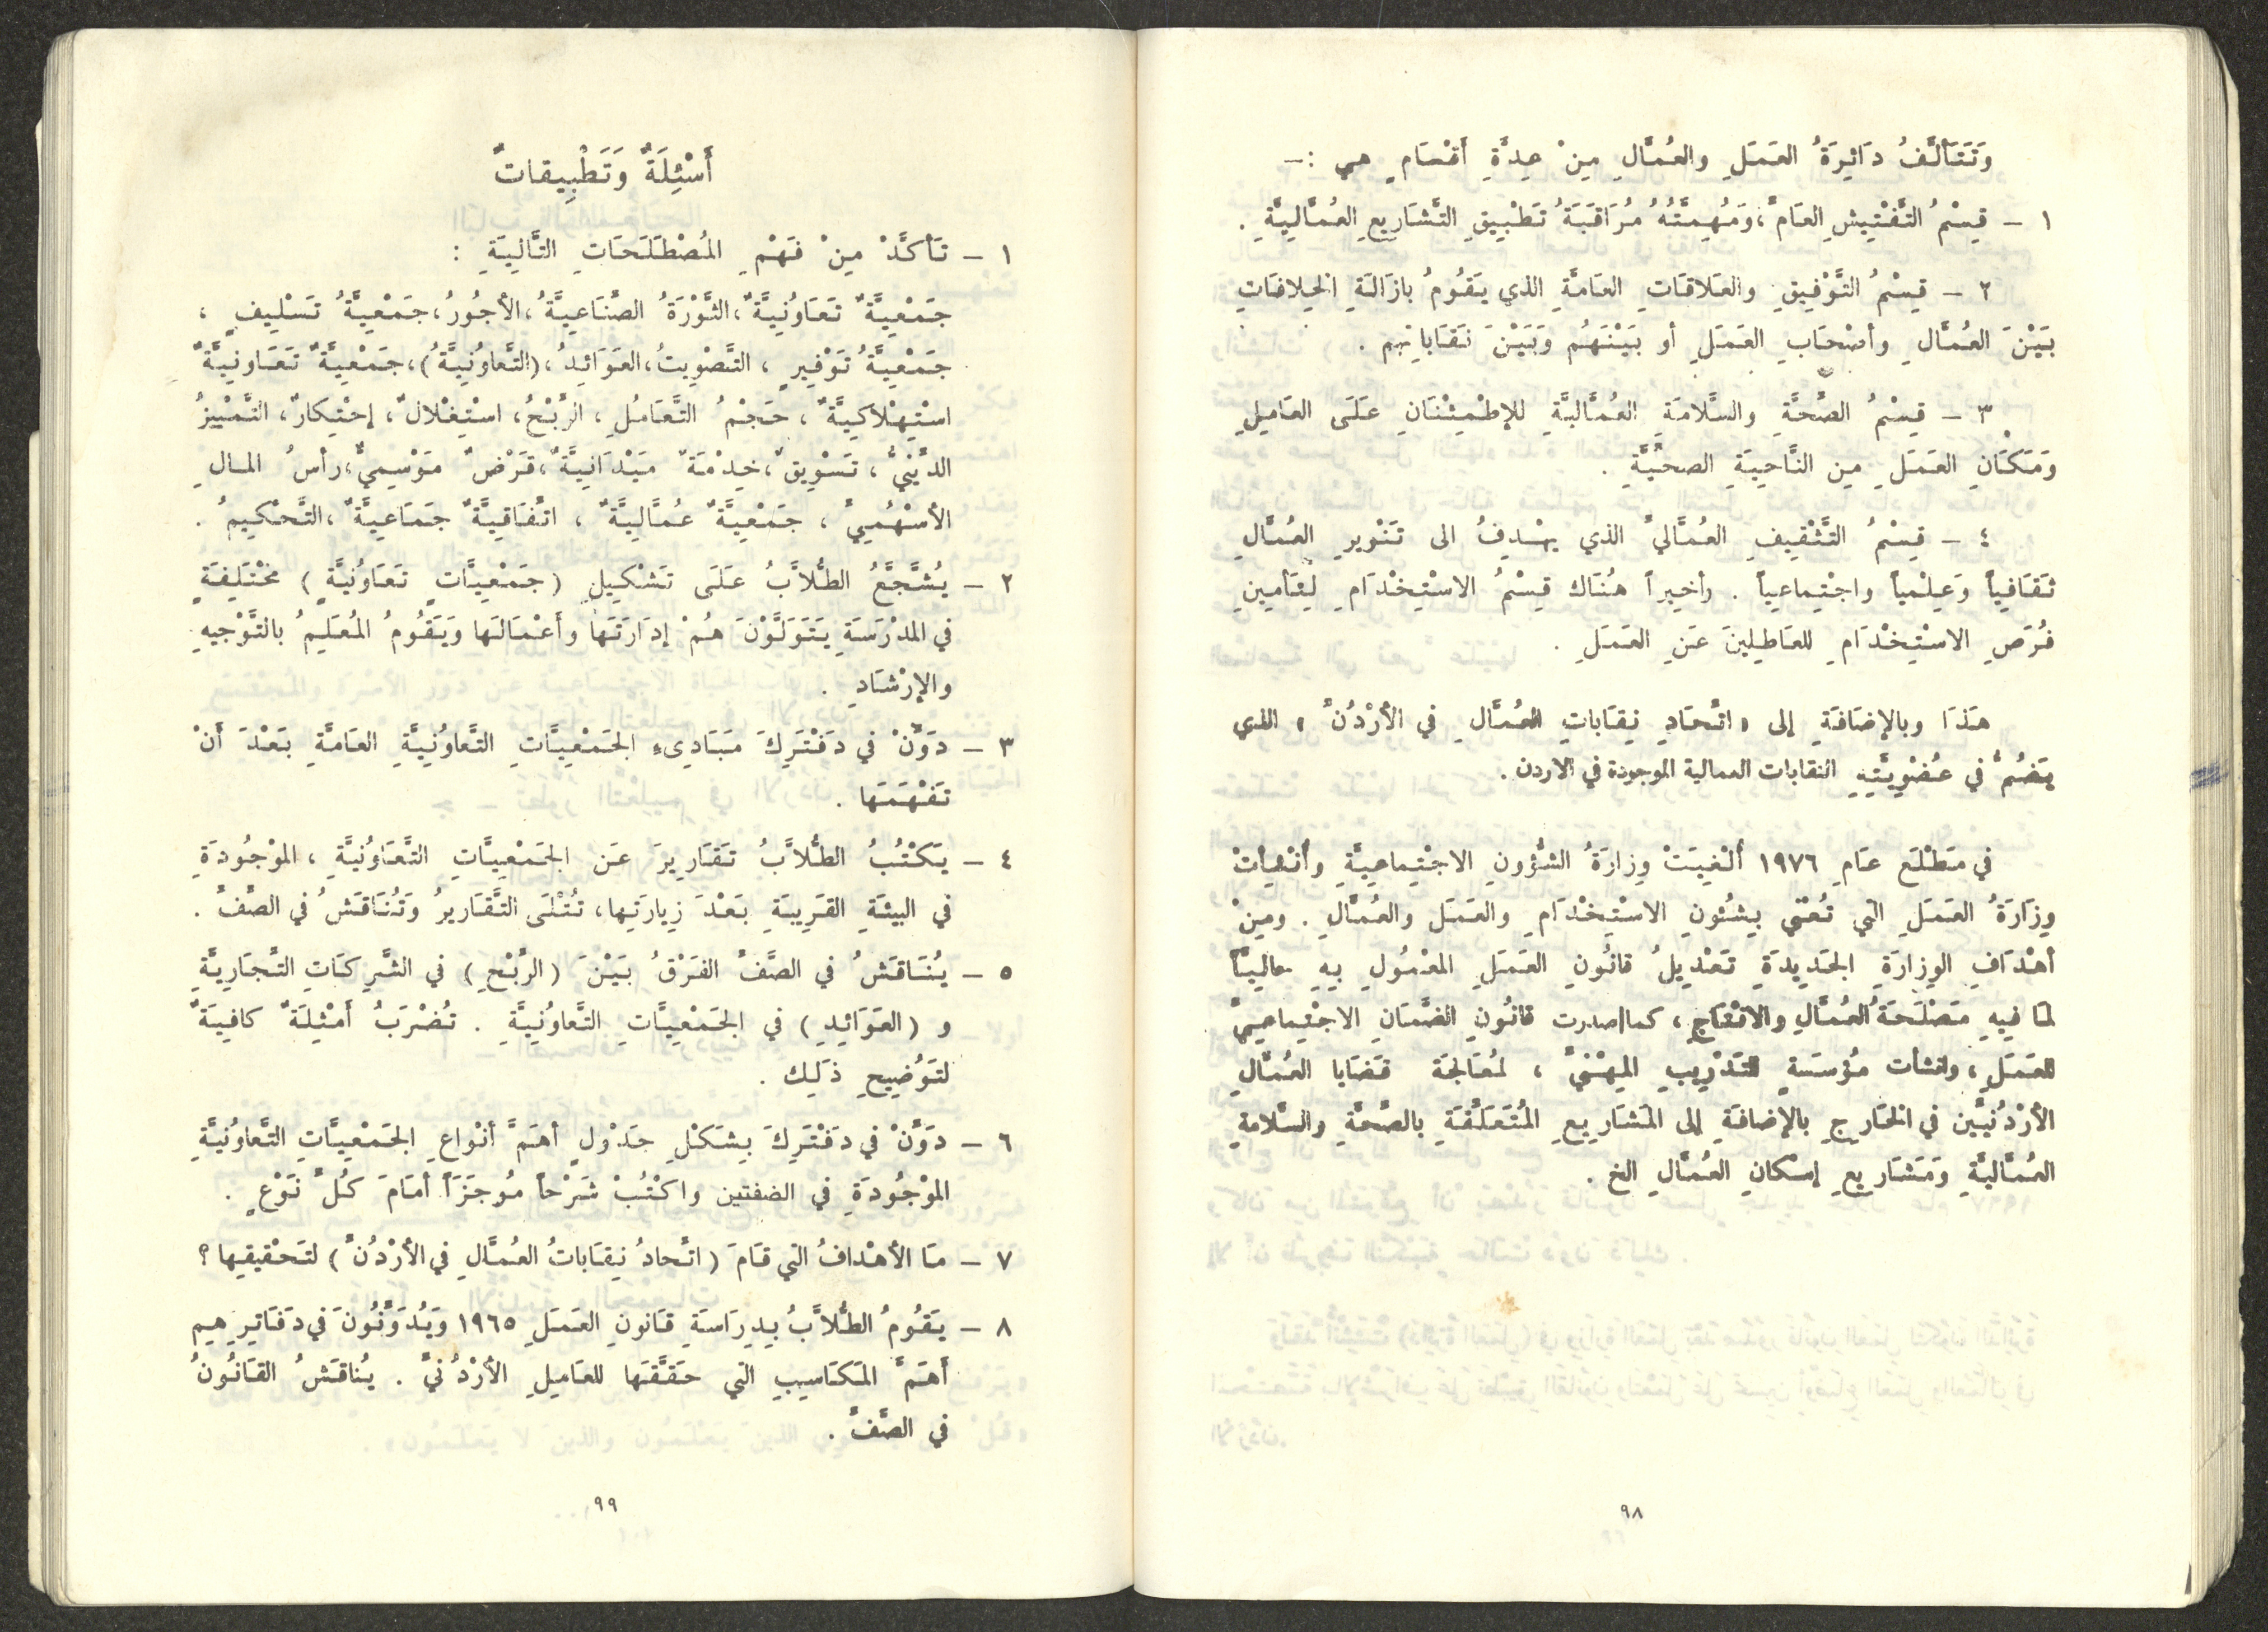 وَتَتَأَلَّفُ دَائِرَةُ العَمَلِ والعُمَّالِ مِنْ عِدَّةِ أَقْسَامٍ هي :–
١ – قِسْمُ التَّفْتِيشِ العَامِّ، وَمُهِمَّتُهُ مُرَاقَبَةُ تَطْبِيقِ التَّشَارِيعِ العُمَّالِيَّةِ .
٢ – قِسْمُ التَّوْفِيقِ والعَلاقَاتِ العَامَّةِ الذي يَقُومُ بازَالَةِ الخِلافَاتِ
بَيْنَ العُمَّالِ وأصْحَابِ العَمَلِ أو بَيْنَهُم وَبَيْنَ نَقَاباتِهم .
٣ – قِسْمُ الصِّحَّةِ والسَّلامَةِ العُمَّاليَّةِ للإطْمِئْنَانِ عَلَى العَامِلِ
وَمَكَانِ العَمَلِ مِن النَّاحِيَةِ الصحيَّةِ .
٤ – قِسْمُ التَّثْقِيفِ العُمَّاليِّ الذي يهْدِفُ الى تَنْوِيرِ العُمَّالِ
ثَقَافياً وَعِلْمياً واجْتِماعياً . وأخيراً هُنَاك قِسْمُ الاسْتِخْدَامِ لِتَأمِينِ
فُرَصِ الاسْتِخْدَامِ للعَاطِلِينَ عَنِ العَمَلِ .
هَذَا وبالإضَافَةِ إلى « اتِّحَادِ نِقَابَاتِ العُمَّالِ في الأرْدُنِّ » الذي
يَضُمُّ في عُضْوِيَّتِهِ النقابات العمالية الموجودة في الاردن .
في مَطْلَع عَامِ ١٩٧٦ أُلْغِيَتْ وِزارَةُ الشُّؤونِ الاجْتِماعِيَّةِ وأُنْشِأتْ
وِزَارَةُ العَمَلِ التي تُعْنَى بِشئُونِ الاسْتِخْدَامِ والعَمَلِ والعُمَّالِ . ومِنْ
أهْدَافِ الوِزارَةِ الجَدِيدَةِ تَعْدِيلُ قانُونِ العَمَلِ المعْمُولِ بِهِ حالِيّاً
لمَا فِيهِ مَصْلَحَةُ العُمَّالِ والانْتَاجِ، كما اصدرت قانُونِ الضَّمَانِ الاجْتِماعِيِّ
للعَمَلِ، وانشأت مُؤسَسَةٍ للتَدْرِيبِ المِهْنيِّ ، لمُعَالَجَة قَضَايا العُمَّالِ
الأرْدُنيّين في الخَارِجِ بالإضافَةِ إلى المَشَارِيعِ المُتَعَلِّقَةِ بالصِّحَّةِ والسَّلامةِ
العُمَّاليَّةِ وَمَشَارِيعِ إسْكانِ العُمَّالِ الخ .
٩٨
أَسْئِلَةٌ وَتَطْبِيقاتٌ
١ – تَأكَّدْ مِنْ فَهْمِ المُصْطَلَحَاتِ التَّالِيَةِ :
جَمْعِيَّةٌ تَعَاوُنِيَّةٌ، الثَّوْرَةُ الصِّنَاعِيَّةُ، الأجُورُ، جَمْعِيَّةُ تَسْلِيفٍ ،
جَمْعِيَّةُ تَوْفِيرٍ ، التَّصْوِيتُ، العَوَائِدُ، (التَّعاوُنِيَّةُ)، جَمْعِيَّةٌ تَعَاونِيَّةٌ
اسْتِهْلاكِيَّةٌ ، حَجْمُ التَّعَامُلِ ، الرِّبْحُ، اسْتِغْلالٌ، إحْتِكارٌ، التَّمْيِيزُ
الدِّينيُّ ، تَسْوِيقٌ، خِدْمَةٌ مَيْدَانِيَّةٌ، قَرْضٌ مَوْسِميٌّ، رأسُ المالِ
الأسْهُمِيُّ ، جَمْعِيَّةٌ عُمَّالِيَّةٌ ، اتِّفَاقِيَّةٌ جَمَاعِيَّةٌ ، التَّحْكِيمُ .
٢ – يُشَجَّعُ الطُّلاَّبُ عَلَى تَشْكِيلِ (جَمْعِيَّاتٍ تَعَاوُنيَّةٍ) مخْتَلِفَةٍ
في المدْرَسَةِ يَتَوَلَّوْنَ هُمْ إدَارَتَهَا وأعْمَالَها وَيَقُومُ المُعَلِّمُ بالتَّوْجيهِ
والإرْشَادِ .
٣ – دَوِّنْ في دَفْتَرِكَ مَبَادِىءِ الجَمْعِيَّاتِ التَّعاوُنِيَّةِ العَامَّةِ بَعْدَ أَنْ
تَفْهَمَها .
٤ – يَكْتُبُ الطُّلاَّبُ تَقَارِيرَ عَن الجَمْعِيَّاتِ التَّعَاوُنيَّةِ ، الموْجُودَةِ
في البيئَةِ القَرِيبَةِ بَعْدَ زِيارَتِها، تُتْلَى التَّقَارِيرُ وَتُنَاقَشُ في الصَّفِّ .
٥ – يُنَاقَشُ في الصَّفِّ الفَرْقُ بَيْنَ (الرِّبْحِ) في الشَّرِكَاتِ التِّجَارِيَّةِ
و (العَوَائِدِ) في الجَمْعِيَّاتِ التَّعاوُنِيَّةِ . تُضْرَبُ أمْثِلَةٌ كافِيَةٌ
لتَوْضِيحِ ذَلِك .
٦ – دَوِّنْ في دَفْتَرِكَ بِشَكْلِ جَدْولٍ أهَمَّ أنْواعِ الجَمْعِيَّاتِ التَّعاوُنيَّةِ
الموْجُودَةِ في الضفتين واكْتُبْ شَرْحاً مُوجَزَاً أمَامَ كُلِّ نَوْعٍ .
٧ – مَا الأهْدافُ التي قَامَ (اتِّحادُ نِقَاباتُ العُمَّالِ في الأرْدُنِّ) لتَحْقيقِها ؟
٨ – يَقُومُ الطُّلاَّبُ بِدِرَاسَةِ قَانونِ العَمَلِ ١٩٦٥ وَيُدَوِّنُونَ في دَفَاتِرِهِم
أَهَمَّ المَكَاسِبِ التي حَقَّقَها للعَامِلِ الأرْدُنيِّ . يُناقَشُ القَانُونُ
في الصَّفِّ .
٩٩